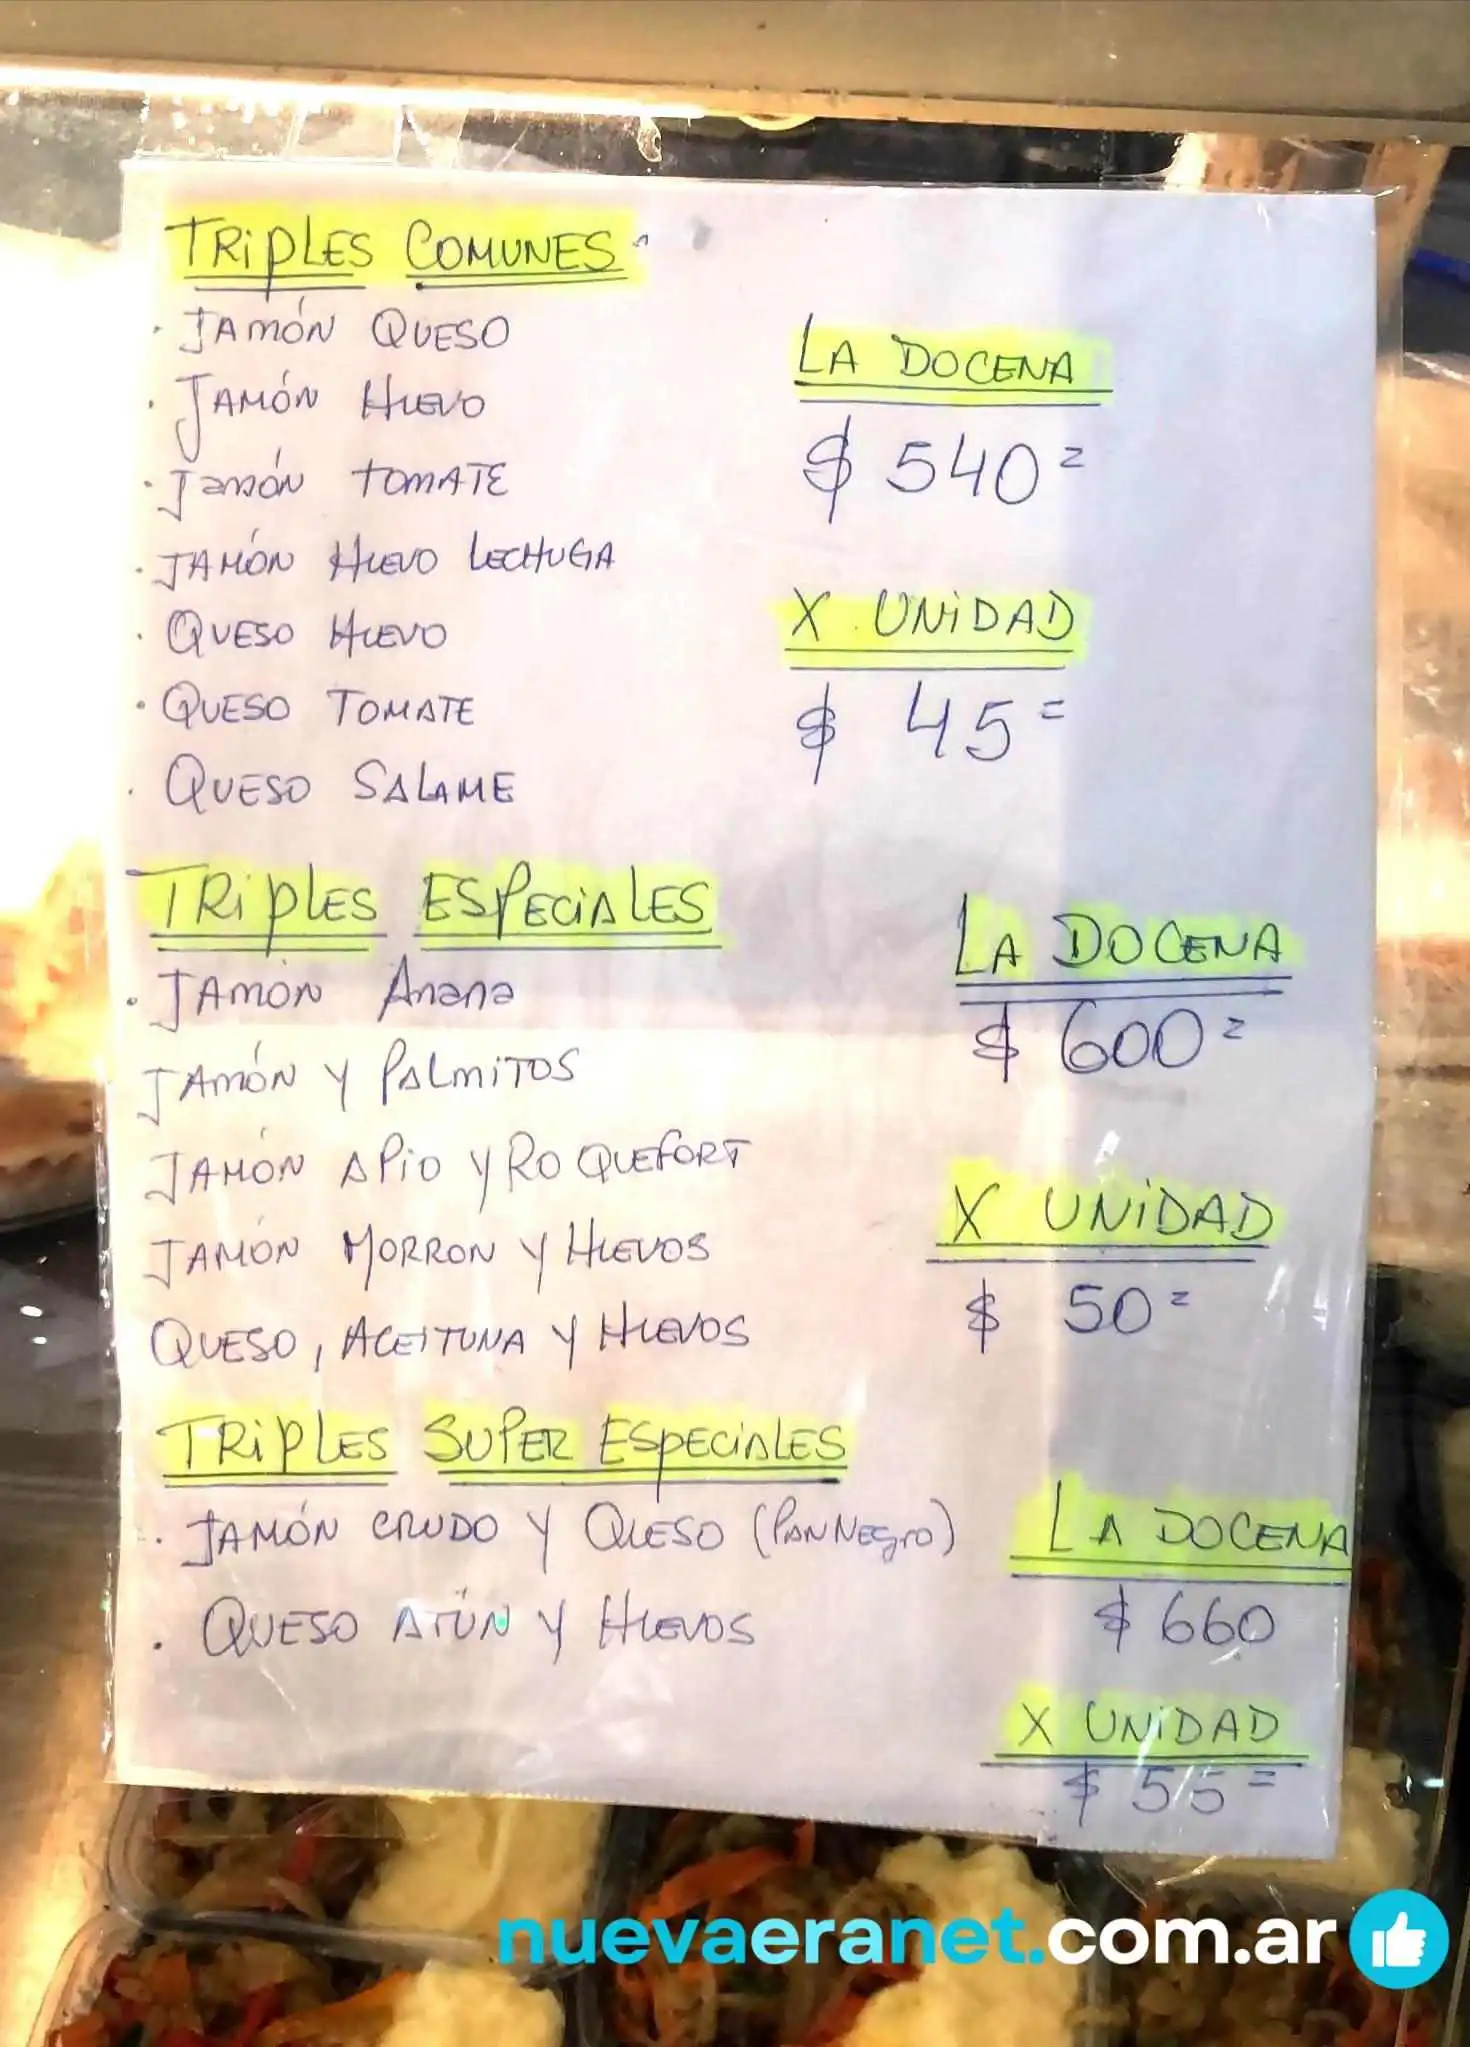 TRIPLES COMUNES
· JAMÓN QUESO
· JAMÓN HUEVO
· JAMÓN TOMATE
· JAMÓN HUEVO LECHUGA
· QUESO HUEVO
· QUESO TOMATE
· QUESO SALAME
LA DOCENA
$ 540=
X UNIDAD
$ 45=
TRIPLES ESPECIALES
· JAMÓN Anana
JAMÓN Y PALMITOS
JAMÓN APIO Y ROQUEFORT
JAMÓN MORRON Y HUEVOS
QUESO, ACEITUNA Y HUEVOS
LA DOCENA
$ 600=
X UNIDAD
$ 50=
TRIPLES SUPER ESPECIALES
· JAMÓN CRUDO Y QUESO (PAN NEGRO)
· QUESO ATÚN Y HUEVOS
LA DOCENA
$ 660
X UNIDAD
$ 55=
nuevaeranet.com.ar